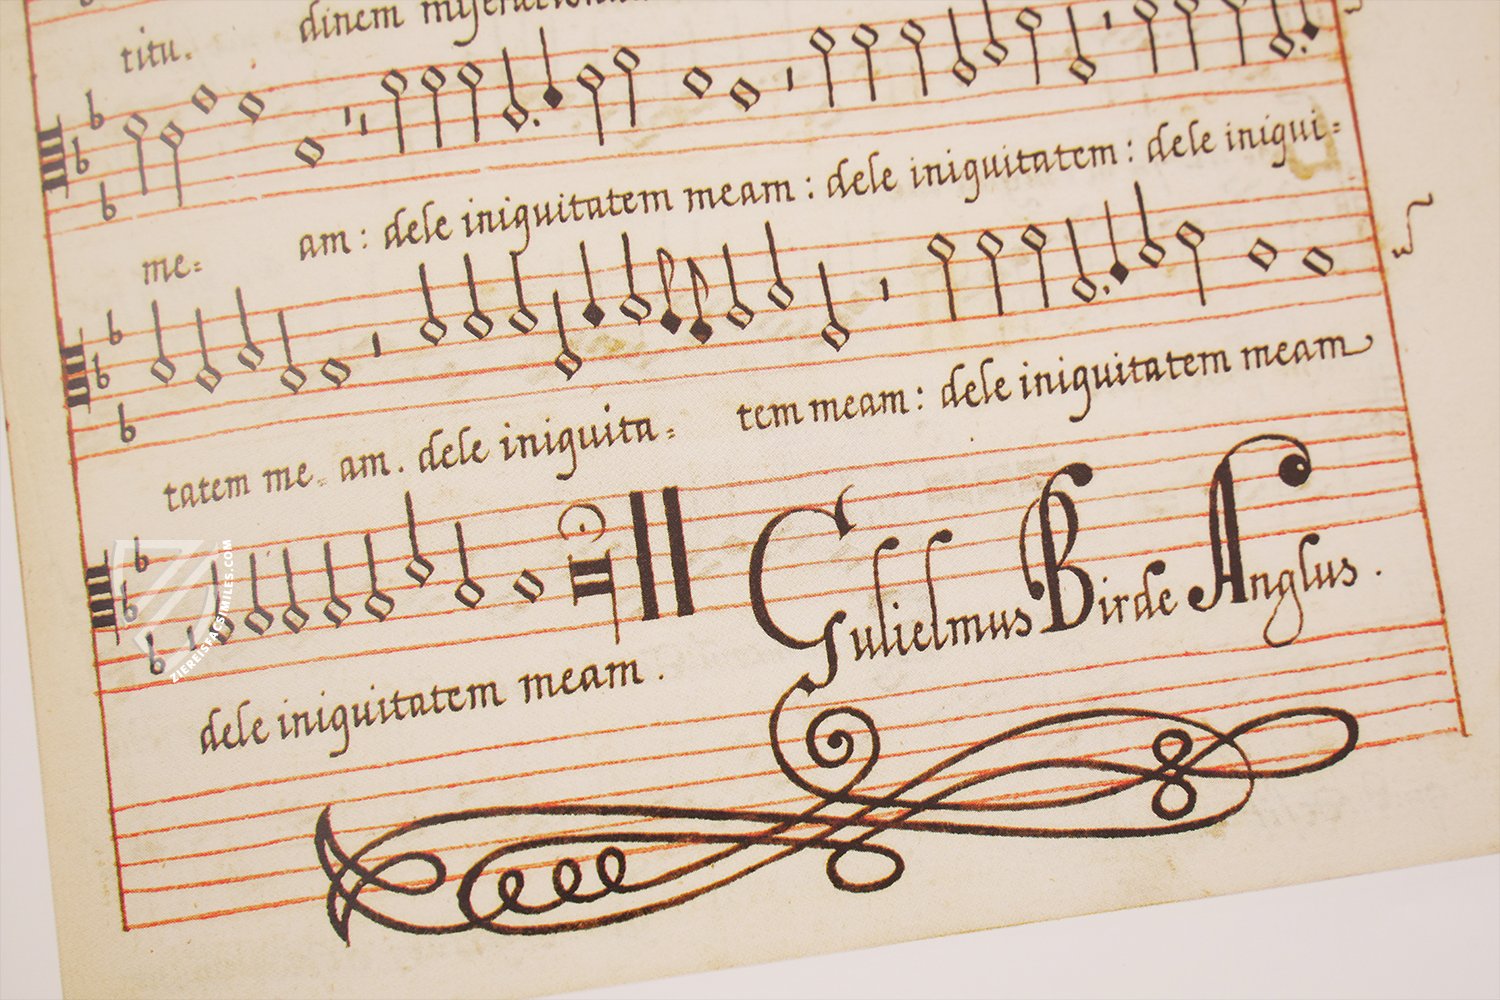 titu. dinem miserationum
me= am : dele iniquitatem meam : dele iniquitatem : dele iniqui=
tatem me= am . dele iniquita= tem meam : dele iniquitatem meam
dele iniquitatem meam .
Gulielmus Birde Anglus .
ZIEREISFACSIMILES.COM